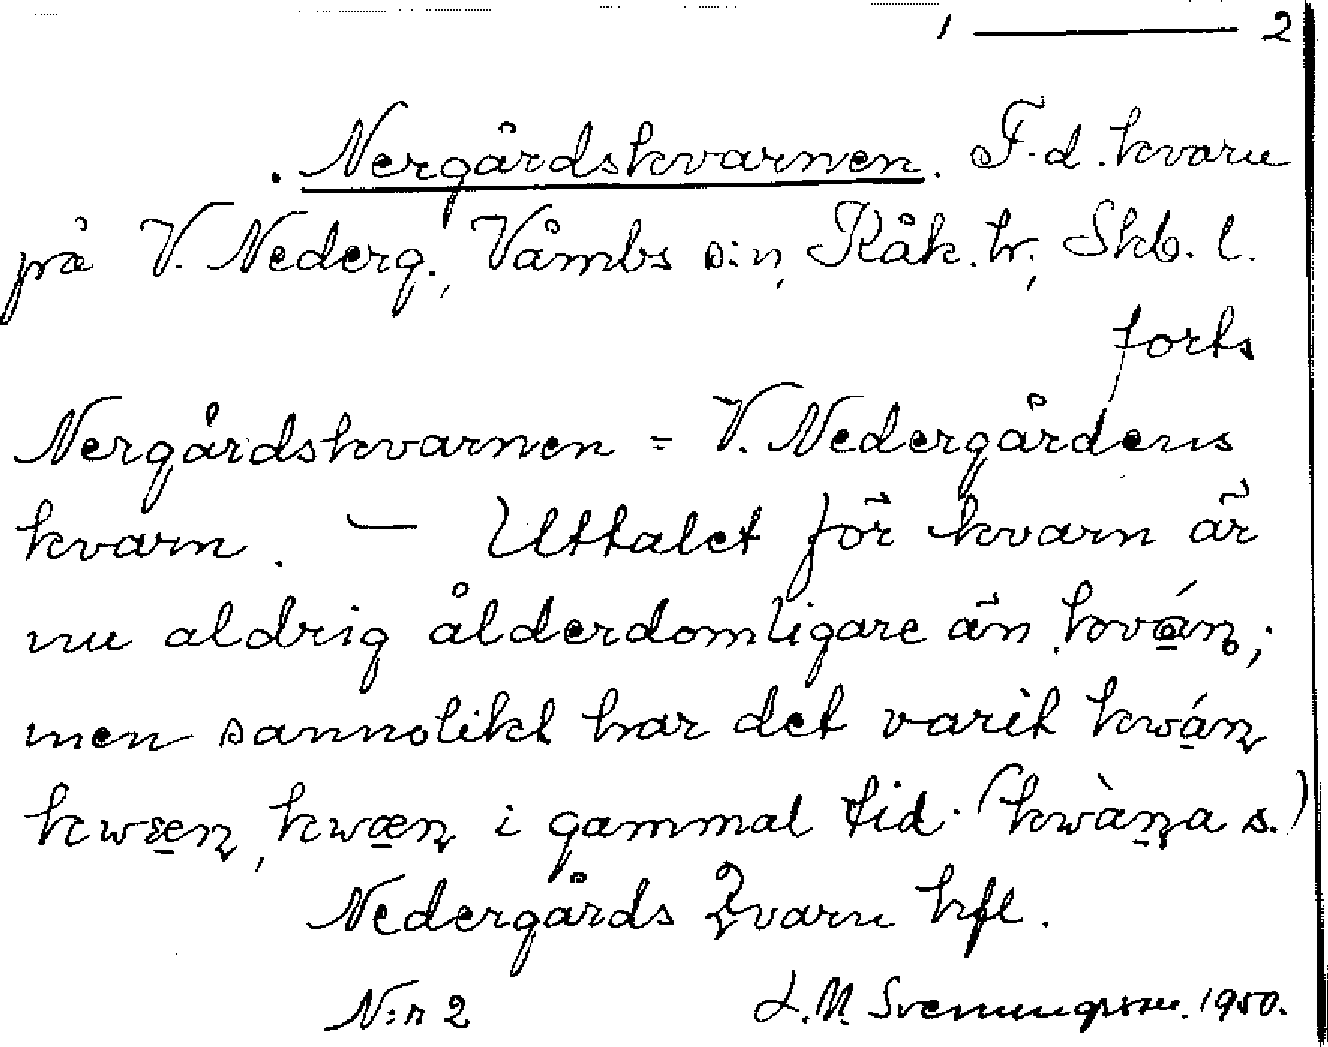 1 ——— 2
. Nergårdskvarnen. F.d. kvarn
på V. Nederg., Våmbs s:n, Kåk. hr, Skb. l.
forts
Nergårdskvarnen = V. Nedergårdens
kvarn. — Uttalet för kvarn är
nu aldrig ålderdomligare än kván;
men sannolikt har det varit kwán
kwæn, kwæn i gammal tid. (kwàna s.)
Nedergårds Qvarn hfl.
N:r 2 L. M. Svenungsson. 1950.